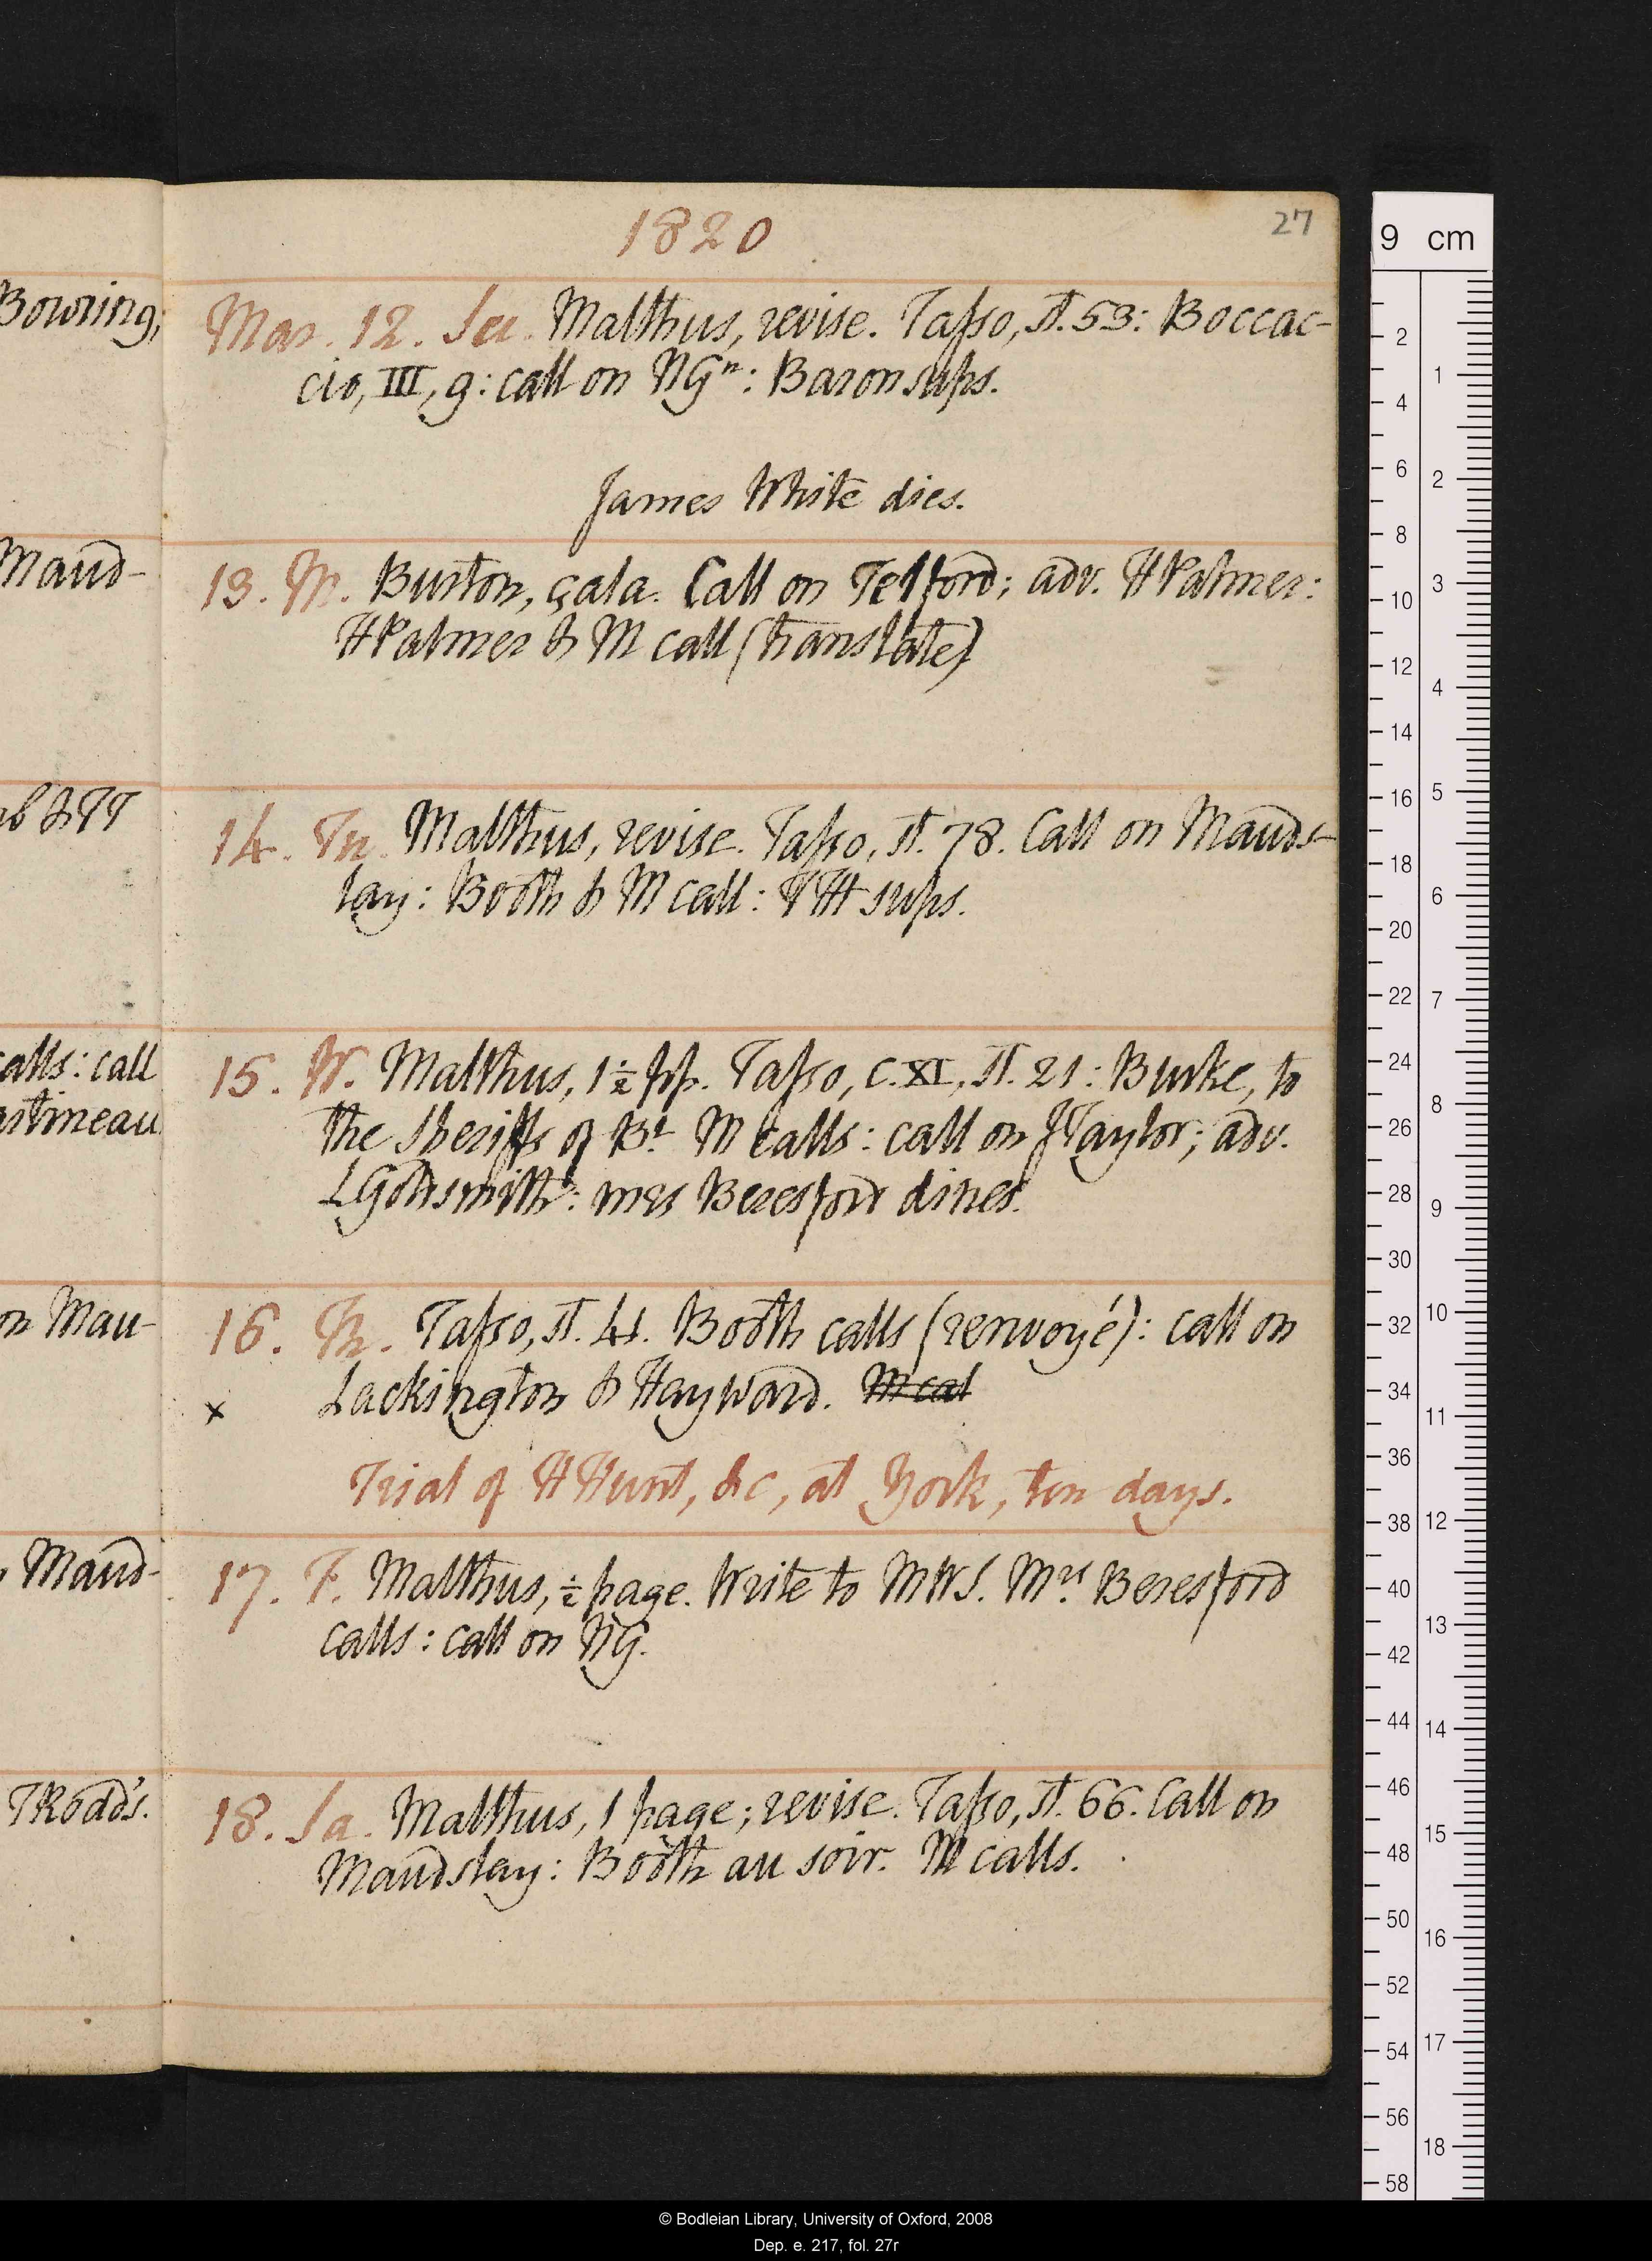 1820
27
Mar. 12. Su. Malthus, revise. Tasso, st. 53: Boccac-
cio, III, 9: call on NGn: Baron sups.
James White dies.
13. M. Burton, çala. Call on Telford; adv. HPalmer:
HPalmer & M call (translate)
14. Tu. Malthus, revise. Tasso, st. 78. Call on Mauds-
lay: Booth & M call: TTH sups.
15. W. Malthus, 1½ pp. Tasso, c. XI, st. 21: Burke, to
the Sheriffs of Bl. M calls: call on JTaylor; adv.
LGoldsmith: mrs Beresford dines.
16. Th. Tasso, st. 41. Booth calls (renvoyé): call on
x Lackington & Hayward. M cal
Trial of HHunt, &c, at York, ten days.
17. F. Malthus, ½ page. Write to MWS. Mrs Beresford
calls: call on NG.
18. Sa. Malthus, 1 page; revise. Tasso, st. 66. Call on
Maudslay: Booth au soir. M calls.
Bowring;
Maud-
& TT
calls: call
artineau
on Mau-
, Maud-
TRodd's.
9 cm
2
4
6
8
10
12
14
16
18
20
22
24
26
28
30
32
34
36
38
40
42
44
46
48
50
52
54
56
58
1
2
3
4
5
6
7
8
9
10
11
12
13
14
15
16
17
18
© Bodleian Library, University of Oxford, 2008
Dep. e. 217, fol. 27r